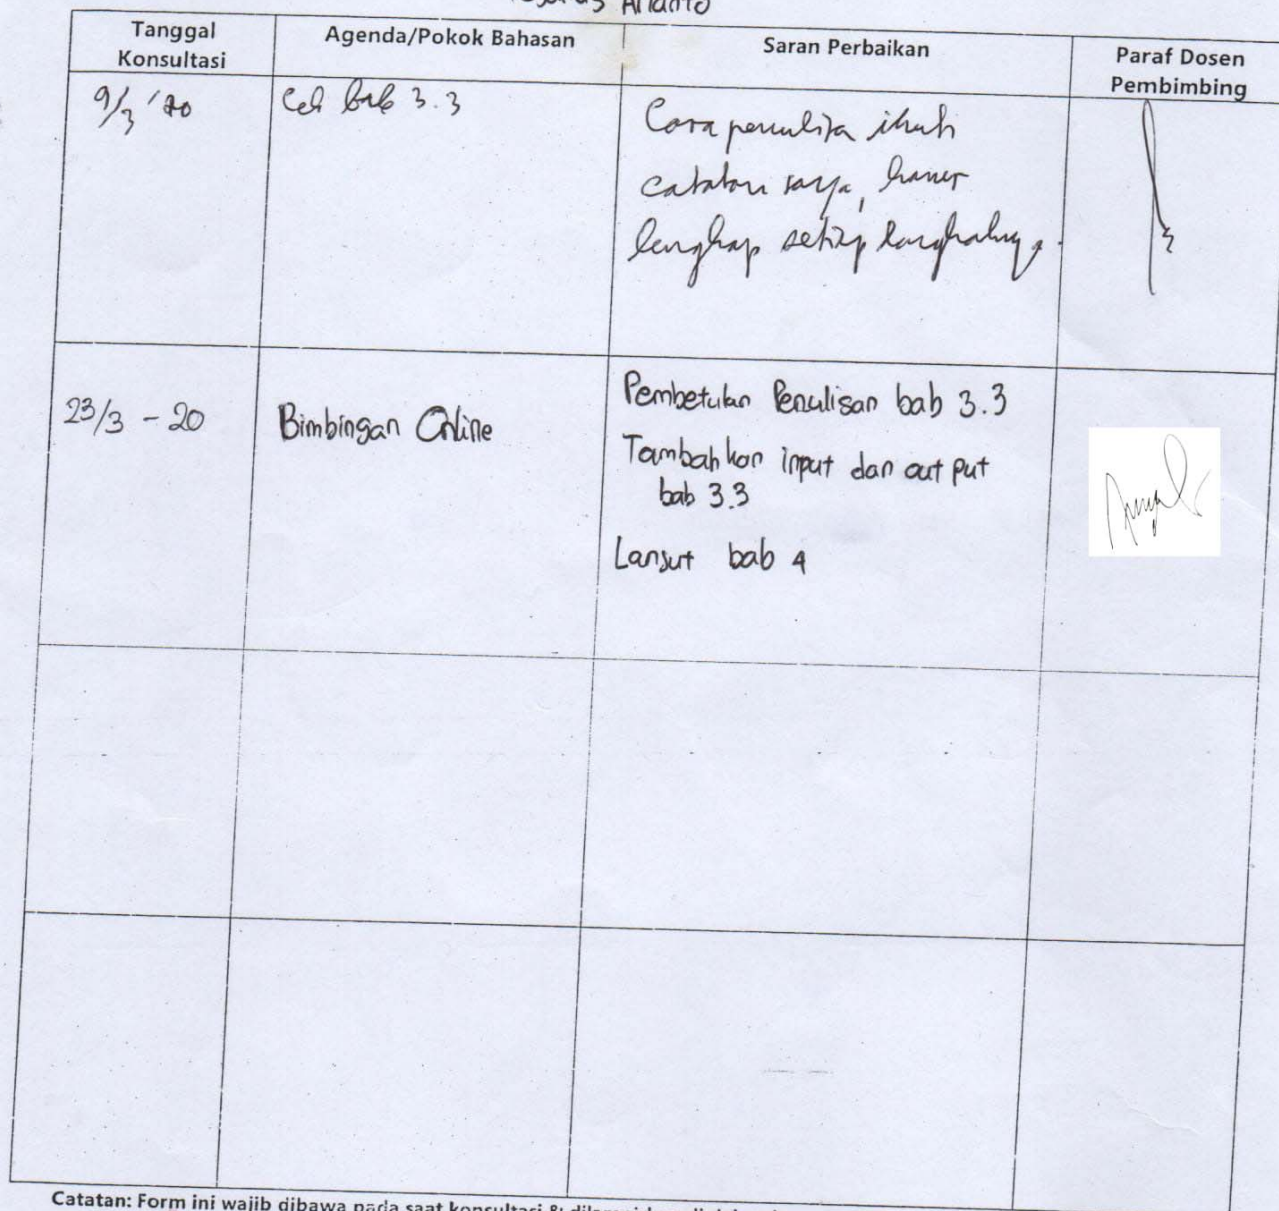 Arianto
Tanggal
Konsultasi
Agenda/Pokok Bahasan
Saran Perbaikan
Paraf Dosen
Pembimbing
9/3 '20
Cek bab 3.3
Cara penulisa ikuti
catatan saya, harus
lengkap setiap langkahnya.
23/3 - 20
Bimbingan Online
Pembetulan Penulisan bab 3.3
Tambahkan input dan output
bab 3.3
Lanjut bab 4
Catatan: Form ini wajib dibawa pada saat konsultasi &